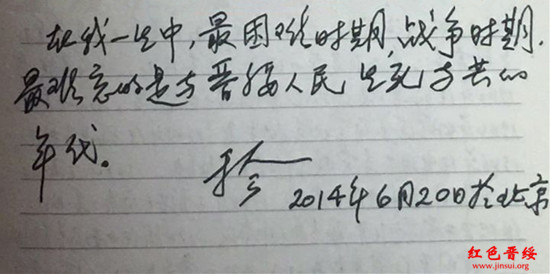 在我一生中,最困难时期,战争时期.
最难忘的是与晋绥人民生死与共的
年代。
2014年6月20日于北京
红色晋绥
www.jinsui.org